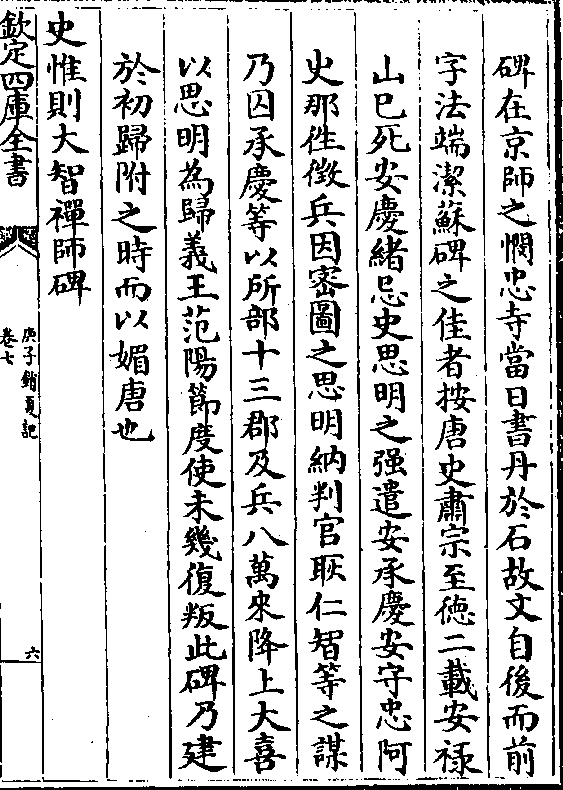 碑在京師之憫忠寺當日書丹於石故文自後而前
字法端潔蘇碑之佳者按唐史肅宗至徳二載安禄
山已死安慶緒忌史思明之强遣安承慶安守忠阿
史那徃徴兵因密圖之思明納判官耿仁智等之謀
乃囚承慶等以所部十三郡及兵八萬來降上大喜
以思明為歸義王范陽節度使未幾復叛此碑乃建
於初歸附之時而以媚唐也
史惟則大智禪師碑
欽定四庫全書
庚子銷夏記
卷七
六